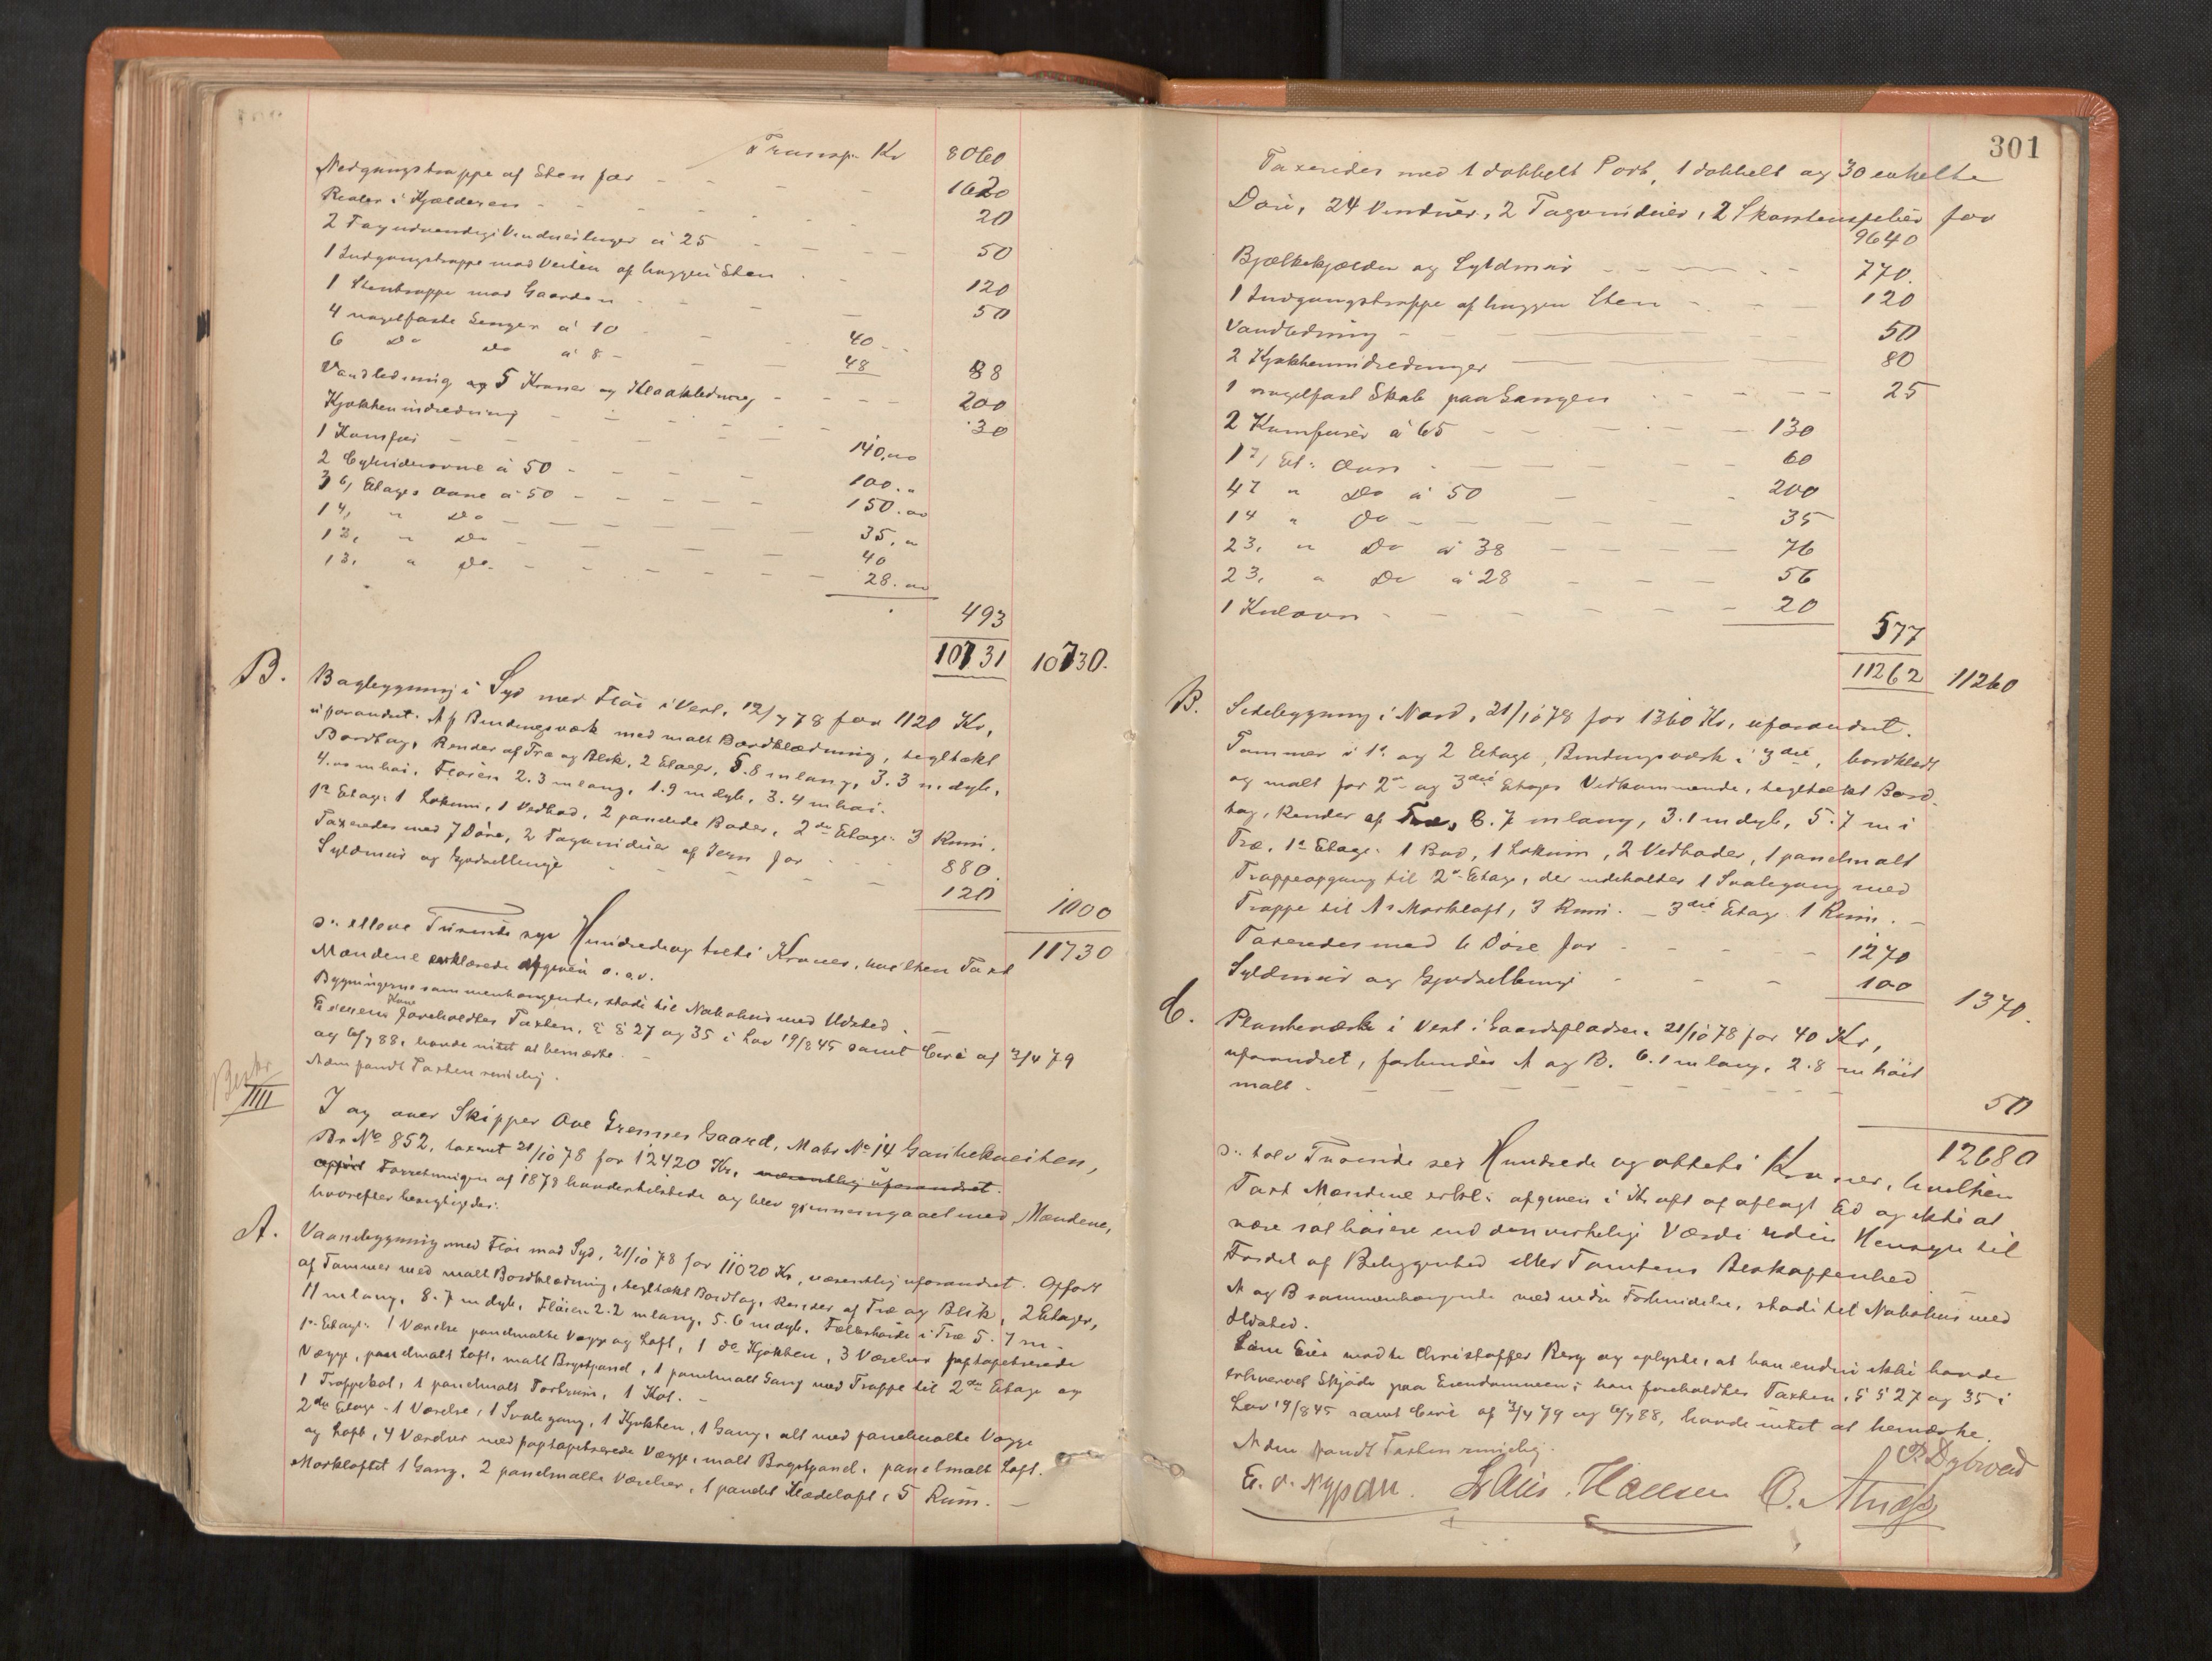 Transp. Kr 8060
Nedgangstrappe af Sten for - - - 1620
Reoler i Kjælderen - - - 20
2 Fag udvendige Vinduesluger á 25 - - - 50
1 Indgangstrappe mod Veiten af huggen Sten - - 120
1 Stentrappe mod Gaarden - - - 50
4 nagelfaste Senge á 10 - - 40 -
6 Do Do á 8 - - - 48 88
Vandledning og 5 Kraner og Kloakledning - - - - 200
Kjøkkenindredning - - - - 30
1 Komfur - - - 140.00
2 Cylinderovne á 50 - - - 100. "
3 6/ Etages Ovne á 50 - - - 150.00
1 4/ " Do - - - 35. "
1 3/ " Do - - - 40
1 3/ " Do - - - 28.00
493
10731 10730.
B. Bagbygning i Syd med Fløi i Vest, 12/7 78 for 1120 Kr,
uforandret. Af Bindingsværk med malt Bordklædning, tegltækt
Bordtag, Render af Træ og Blik, 2 Etager, 5.8 m lang, 3.3 m. dyb,
4.00 m høi, Fløien 2.3 m lang, 1.9 m dyb, 3.4 m høi.
1ste Etage: 1 Lokum, 1 Vedbod, 2 panelede Boder, 2den Etage: 3 Rum.
Taxeredes med 7 Døre, 2 Tagvinduer af Jern for - - - 880.
Syldmur og Gjødselbinge - - - 120 1000
11730
ɔ: elleve Tusinde syv Hundrede og treti Kroner, hvilken Taxt
Mændene erklærede afgiven o.s.v.
Bygningerne sammenhængende, stødt til Nabohus med Ildsted.
Eierens Kone foreholdtes Taxten, § § 27 og 35 i Lov 19/8 45 samt Circ af 3/4 79
og 6/7 88, havde intet at bemærke. -
Adm fandt Taxten rimelig.
IIII I og over Skipper Ove Grønnes Gaard, Matr No 14 Ganbekveiten,
Br No 852, taxeret 21/10 78 for 12420 Kr, væsentlig uforandret.
Forretningen af 1878 havdes tilstede og blev gjennemgaaet med Mændene,
hvorefter besigtigedes:
A. Vaanebygning med Fløi mod Syd, 21/10 78 for 11020 Kr, væsentlig uforandret. Opført
af Tømmer med malt Bordklædning, tegltækt Bordtag, Render af Træ og Blik, 2 Etager,
11 m lang, 8.7 m dyb, Fløien 2.2 m lang, 5.6 m dyb, Fælleshøide i Træ 5.7 m. -
1ste Etage: 1 Værelse panelmalte Vægge og Loft, 1 do Kjøkken, 3 Værelser paptapetserede
Vægge, panelmalt Loft, malt Brystpanel, 1 panelmalt Gang med Trappe til 2den Etage og
1 Trappekot, 1 panelmalt Portrum, 1 Kot. -
2den Etage - 1 Værelse, 1 Svalegang, 1 Kjøkken, 1 Gang, alt med panelmalte Vægge
og Loft, 4 Værelser med paptapetserede Vægge, malt Brystpanel, panelmalt Loft.
Mørkloftet 1 Gang, 2 panelmalte Værelser, 1 panelet Klædeloft, 5 Rum. -
301
Taxeredes med 1 dobbelt Port, 1 dobbelt og 30 enkelte
Døre, 24 Vinduer, 2 Tagvinduer, 2 Skorstenspiber for
9640
Bjælkekjælder og Syldmur - - - 770.
1 Indgangstrappe af huggen Sten - - - 120
Vandledning - - - 50
2 Kjøkkenindredninger - - - 80
1 nagelfast Skab paa Gangen - - - 25
2 Komfurer á 65 - - - 130
1 7/ Et: Ovn - - - 60
4 7 " Do á 50 - - 200
1 4 " Do - - - 35
2 3, " Do á 38 - - - 76
2 3, " Do á 28 - - - 56
1 Kulovn - - - 20
577
11262 11260
B. Sidebygning i Nord, 21/10 78 for 1360 Kr, uforandret.
Tømmer i 1ste og 2 Etage, Bindingsværk i 3die, bordklædt
og malt for 2den og 3die Etages Vedkommende, tegltækt Bord-
tag, Render af Træ, 6.7 m lang, 3.1 m dyb, 5.7 m i
Træ, 1ste Etage: 1 Bod, 1 Lokum, 2 Vedboder, 1 panelmalt
Trappeopgang til 2den Etage, der indeholder 1 Svalegang med
Trappe til Mørkloft, 3 Rum. - 3die Etage 1 Rum. -
Taxeredes med 6 Døre for - - - 1270
Syldmur og Gjødselbinge - - - 100 1370.
C. Plankeværk i Vest i Gaardspladsen 21/10 78 for 40 Kr,
uforandret, forbinder A og B. 6.1 m lang, 2.8 m høit
malt. - - - 50
12680
ɔ: tolv Tusinde sex Hundrede og otteti Kroner, hvilken
Taxt Mændene erkl: afgiven i Kraft af aflagt Ed og ikke at
være sat høiere end den virkelige Værdi uden Hensyn til
Fordel af Beliggenhed eller Tomtens Beskaffenhed
A og B sammenhængende med indre Forbindelse, stødt til Nabohus med
Ildsted.
Som Eier mødte Christoffer Berg og oplyste, at han endnu ikke havde
erhvervet Skjøde paa Eiendommen; han foreholdtes Taxten, § § 27 og 35 i
Lov 19/8 45 samt Circ af 3/4 79 og 6/7 88, havde intet at bemærke.
Adm fandt Taxten rimelig.
B Dybwad
E. O. Nypan. Hansen